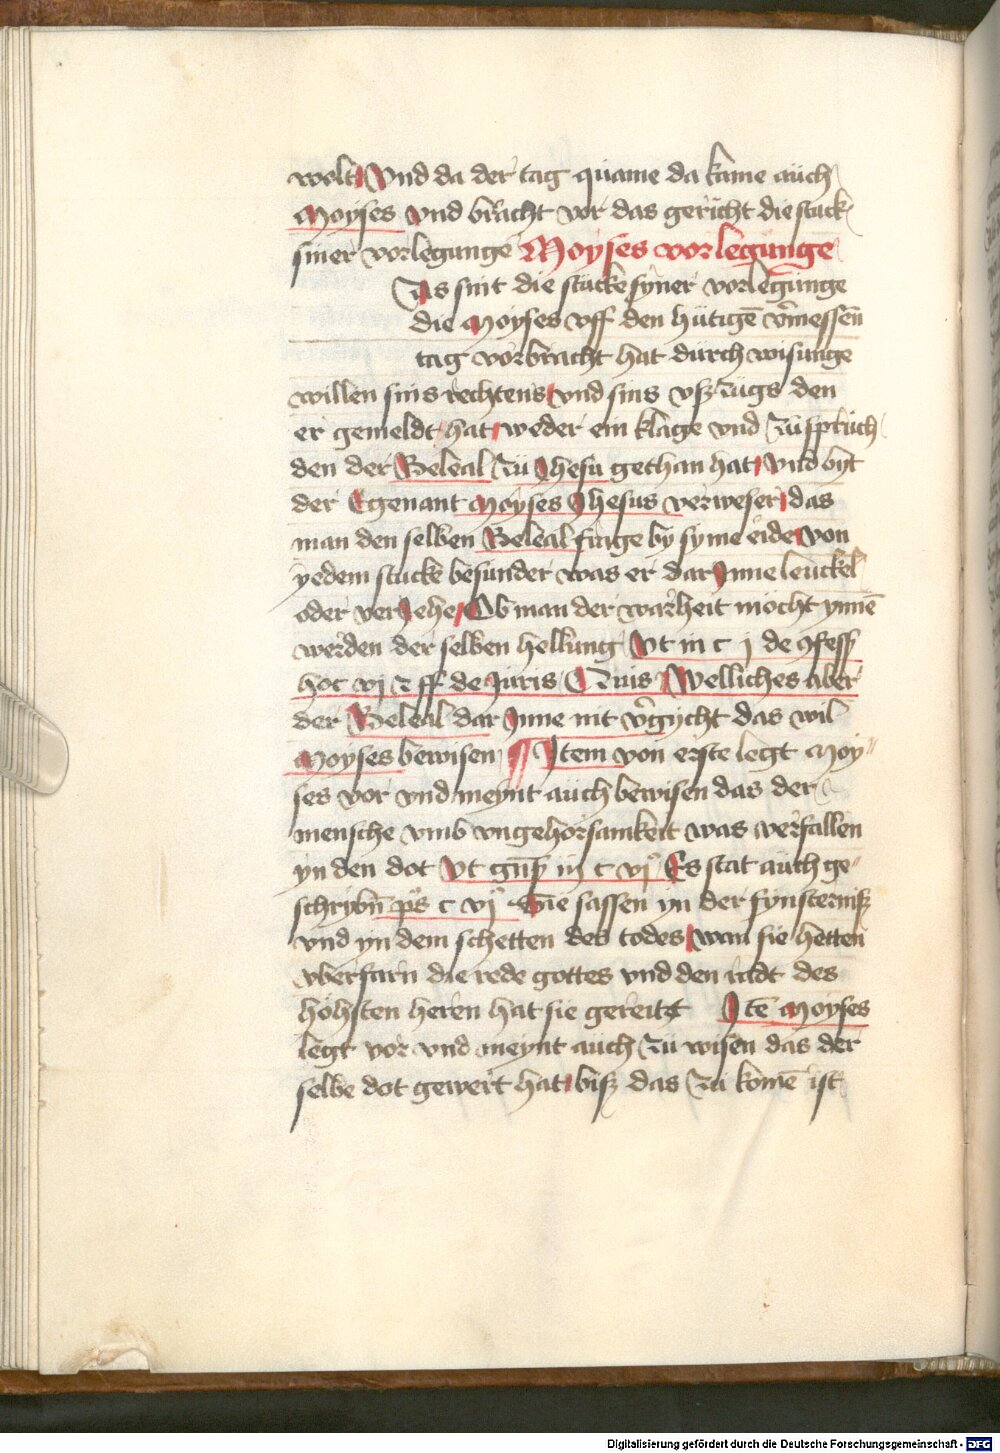 wolt Vnd da der tag quame da kame auch
Moyses vnd bracht vor das gericht die stuck
siner vorlegunge Moyses vorlegunge
Das sint die stucke syner vorlegunge
die Moyses vff den hutigē v̄messen
tag vorbracht hat durch wisunge
willen sins rechtens vnd sins vßzugs den
er gemeldt hat weder ein klage vnd zuspruch
den der Beleal zu Jhesu gethan hat Vnd byt
der Egenant Moyses Jhesus verweser das
man den selben Beleal frage by syme eide von
yedem stucke besunder was er dar Jnne leuckel
oder ver Jehe Ob man der warheit mocht ynnē
werden der selben hellung Vt in c j de 9fess
hoc vj z ff de Juris Welliches aber
der Beleal dar Jnne nit v̄gycht das wil
Moyses bewisen Jtem von erste legt Moy
ses vor vnd meynt auch bewisen das der
mensche vmb vngehorsamkeit was verfallen
yn den dot Vt iij c vj Es stat auch ge
schrybn̄ ps c vj Die sassen yn der fynsterniß
vnd yn dem schetten des todes wan sie hetten
vberfarn die rede gottes vnd den radt des
hohsten heren hat sie gereitt Jtē Moyses
legt vor vnd meynt auch zu wisen das der
selbe dot gewert hat biß das zu komē ist
Digitalisierung gefördert durch die Deutsche Forschungsgemeinschaft - DFG